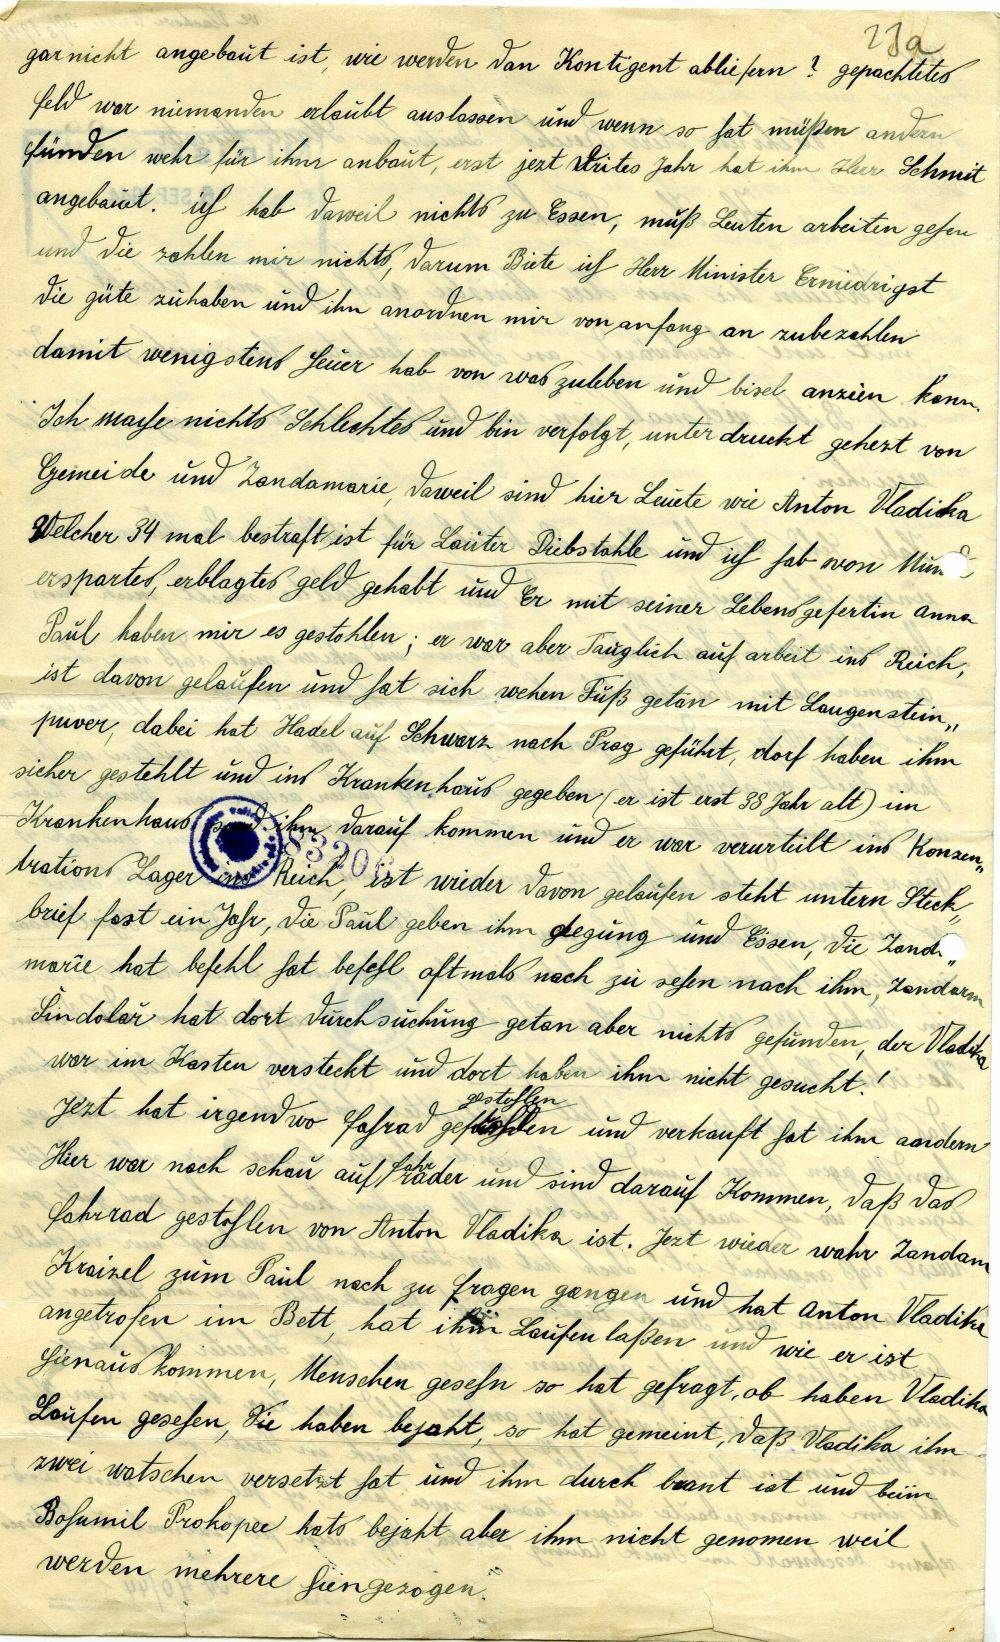 23a
garnicht angebaut ist, wie werden dan Kontigent abliefern? gepachtetes
feld war niemanden erlaubt auslassen und wenn so hat müßen andern
fünden wehr für ihm anbaut, erst jezt Drites Jahr hat ihm Herr Schmit
angebauet. ich hab daweil nichts zu Essen, muß Leuten arbeiten gehen
und die zahlen mir nichts, darum Biete ich Herr Minister Erniedrigst
die güte zuhaben und ihn anordnen mir von anfang an zubezahlen
damit wenigstens heuer hab von was zuleben und bisel anzien kann.
Ich mache nichts Schlechtes und bin verfolgt, unterdruckt gehezt von
Gemeide und Zandamarie, daweil sind hier Leuete wie Anton Vladika
Welcher 34 mal bestraft ist für Lauter Diebstahle und ich hab von Mund
erspartes, erblagtes geld gehabt und Er mit seiner Lebensgefertin Anna
Paul haben mir es gestohlen; er war aber Tauglich auf arbeit ins Reich,
ist davon gelaufen und hat sich wehen Fuß getan mit Laugenstein„
puwer, dabei hat Hadel auf Schwarz nach Prag geführt, dorf haben ihm
sicher gestehlt und ins Krankenhaus gegeben (er ist erst 38 Jahr alt) im
Krankenhaus sind ihm darauf kommen und er war verurteilt ins Konzen„
trations Lager ins Reich, ist wieder davon gelaufen steht untern Steck„
brief fast ein Jahr, die Paul geben ihm legung und Essen, die Zanda„
marie hat befehl hat befehl oftmals nach zu sehen nach ihm, Zandarm
Šindolář hat dort durchsuchung getan aber nichts gefunden, der Vladika
war im Kasten versteckt und dort haben ihm nicht gesucht!
Jezt hat irgendwo fahrad gestohlen und verkauft hat ihm aandern
Hier war nach schau auf fahrräder und sind darauf Kommen, daß das
fahrrad gestohlen von Anton Vladika ist. Jezt wieder wahr Zandam
Kraizel zum Paul nach zu fragen gangen und hat Anton Vladika
angetrofen im Bett, hat ihm Laufen laßen und wie er ist
hienaus kommen, Menschen gesehn so hat gefragt, ob haben Vladika
Laufen gesehen, Sie haben bejaht, so hat gemeint, daß Vladika ihm
zwei watschen versetzt hat und ihm durch brant ist und beim
Bohumil Prokopec hats bejaht aber ihm nicht genomen weil
werden mehrere hiengezogen.